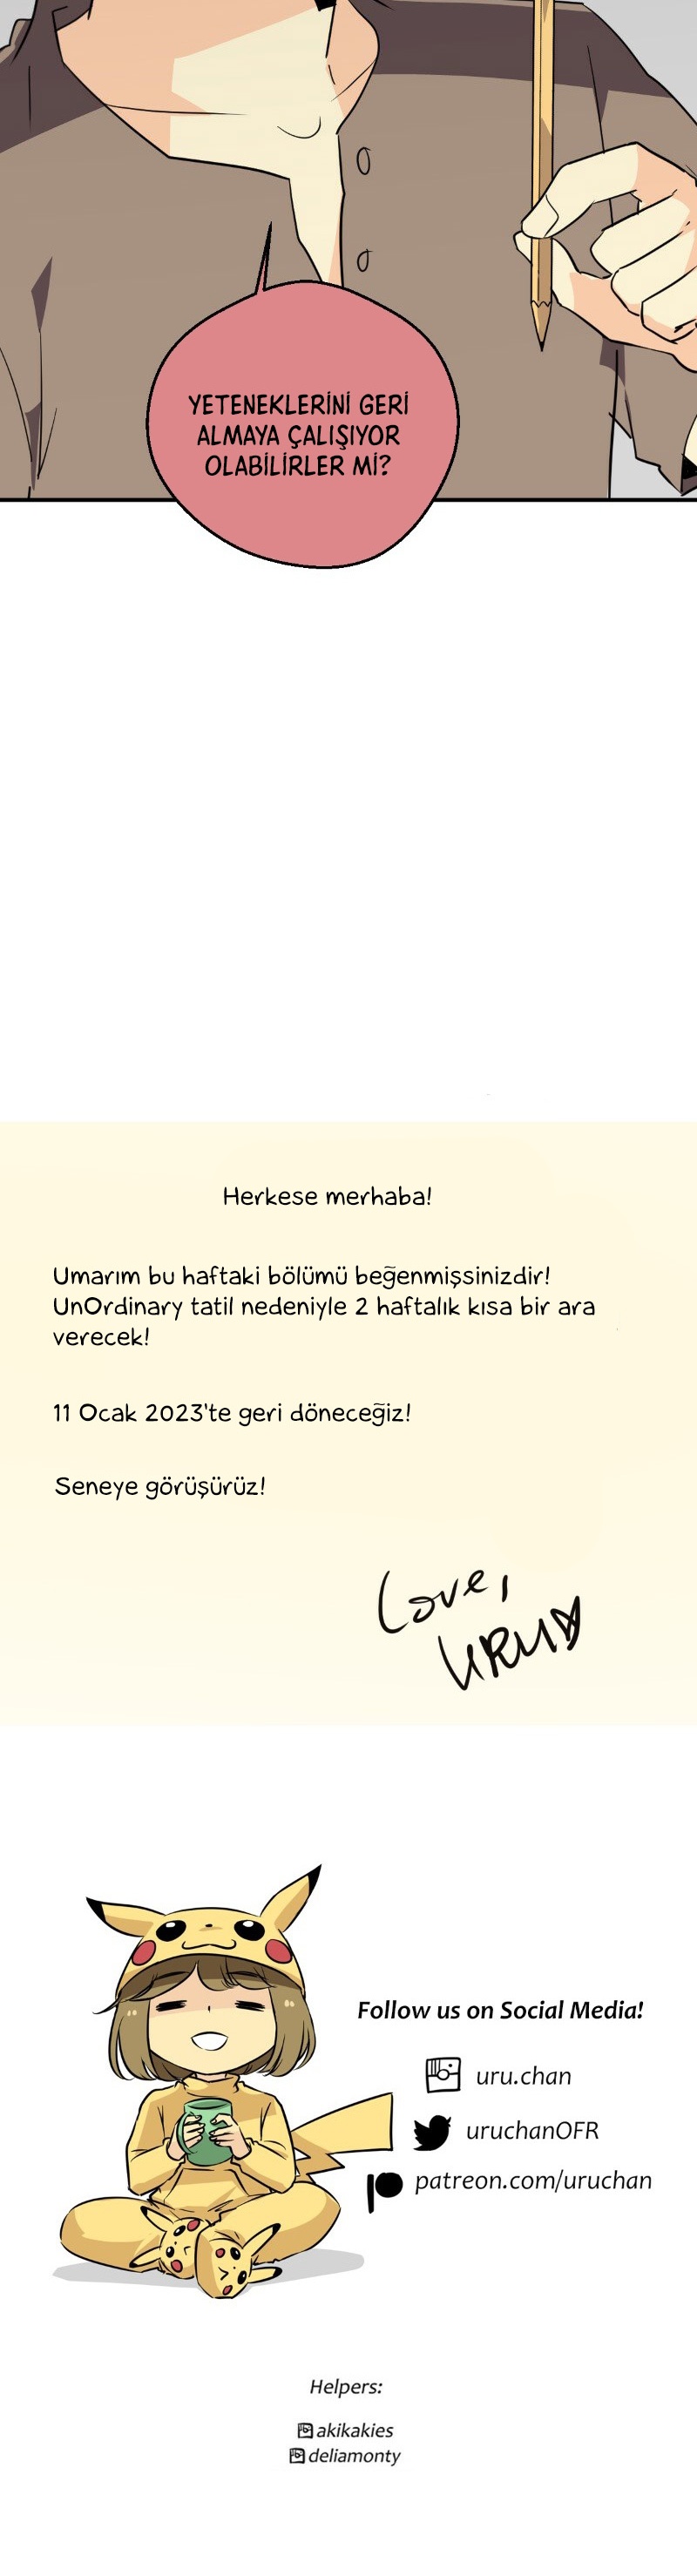 YETENEKLERİNİ GERİ
ALMAYA ÇALIŞIYOR
OLABİLİRLER Mİ?
Herkese merhaba!
Umarım bu haftaki bölümü beğenmişsinizdir!
UnOrdinary tatil nedeniyle 2 haftalık kısa bir ara
verecek!
11 Ocak 2023'te geri döneceğiz!
Seneye görüşürüz!
Love,
URU
Follow us on Social Media!
uru.chan
uruchanOFR
patreon.com/uruchan
Helpers:
akikakies
deliamonty